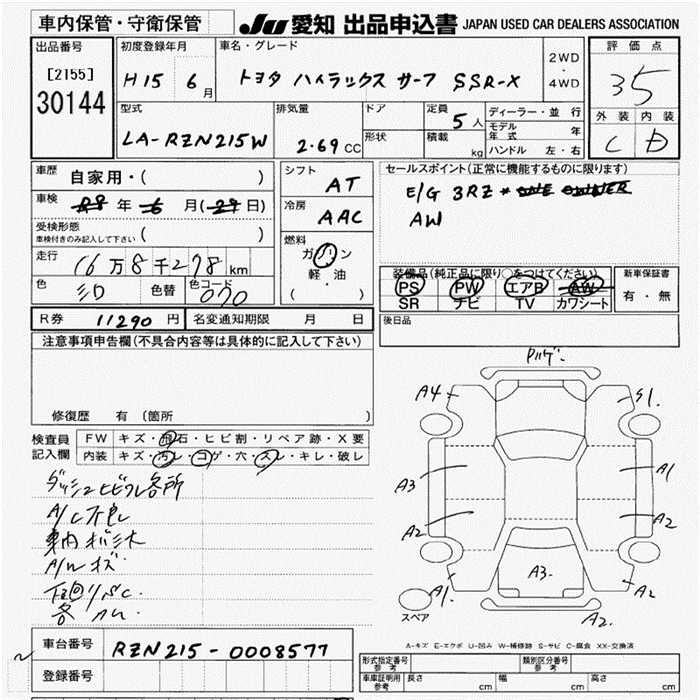 車内保管・守衛保管
JU 愛知 出品申込書 JAPAN USED CAR DEALERS ASSOCIATION
出品番号
[2155]
30144
初度登録年月
H15 6月
車名・グレード
トヨタ ハイラックス サーフ SSR-X
2WD
・
4WD
評価点
35
外装 内装
C D
型式
LA-RZN215W
排気量
2.69 CC
ドア
形状
定員
5人
積載
kg
ディーラー・並行
モデル年式 年
ハンドル 左・右
車歴
自家用・( )
車検
年 月( 日)
受検形態
車検付きのみ記入して下さい ( )
走行
16万8千278km
色
色替
色コード
070
シフト
AT
冷房
AAC
燃料
ガソリン
軽・油
( )
セールスポイント(正常に機能するものに限ります)
E/G 3RZ * ONE OWNER
AW
装備品(純正品に限り○をつけてください)
PS PW エアB AW
SR ナビ TV カワシート
新車保証書
有・無
R券 11290円 名変通知期限 月 日
後日品
注意事項申告欄(不具合内容等は具体的に記入して下さい)
修復歴 有 (箇所 )
検査員
記入欄
FW キズ・飛石・ヒビ割・リペア跡・X要
内装 キズ・汚レ・コゲ・穴・スレ・キレ・破レ
ダッシュヒビワレ各所
A/C不良
車内
A/Wキズ
下回り
各
A4
S1.
A3
A1
A2
A2
A3.
A1.
A2
A2.
スペア
A-キズ E-エクボ U-凹み W-補修跡 S-サビ C-腐食 XX-交換済
車台番号
RZN215-0008577
登録番号
形式指定番号
参考
類別区分番号
参考
車庫証明用
参考
長さ cm 幅 cm 高さ cm